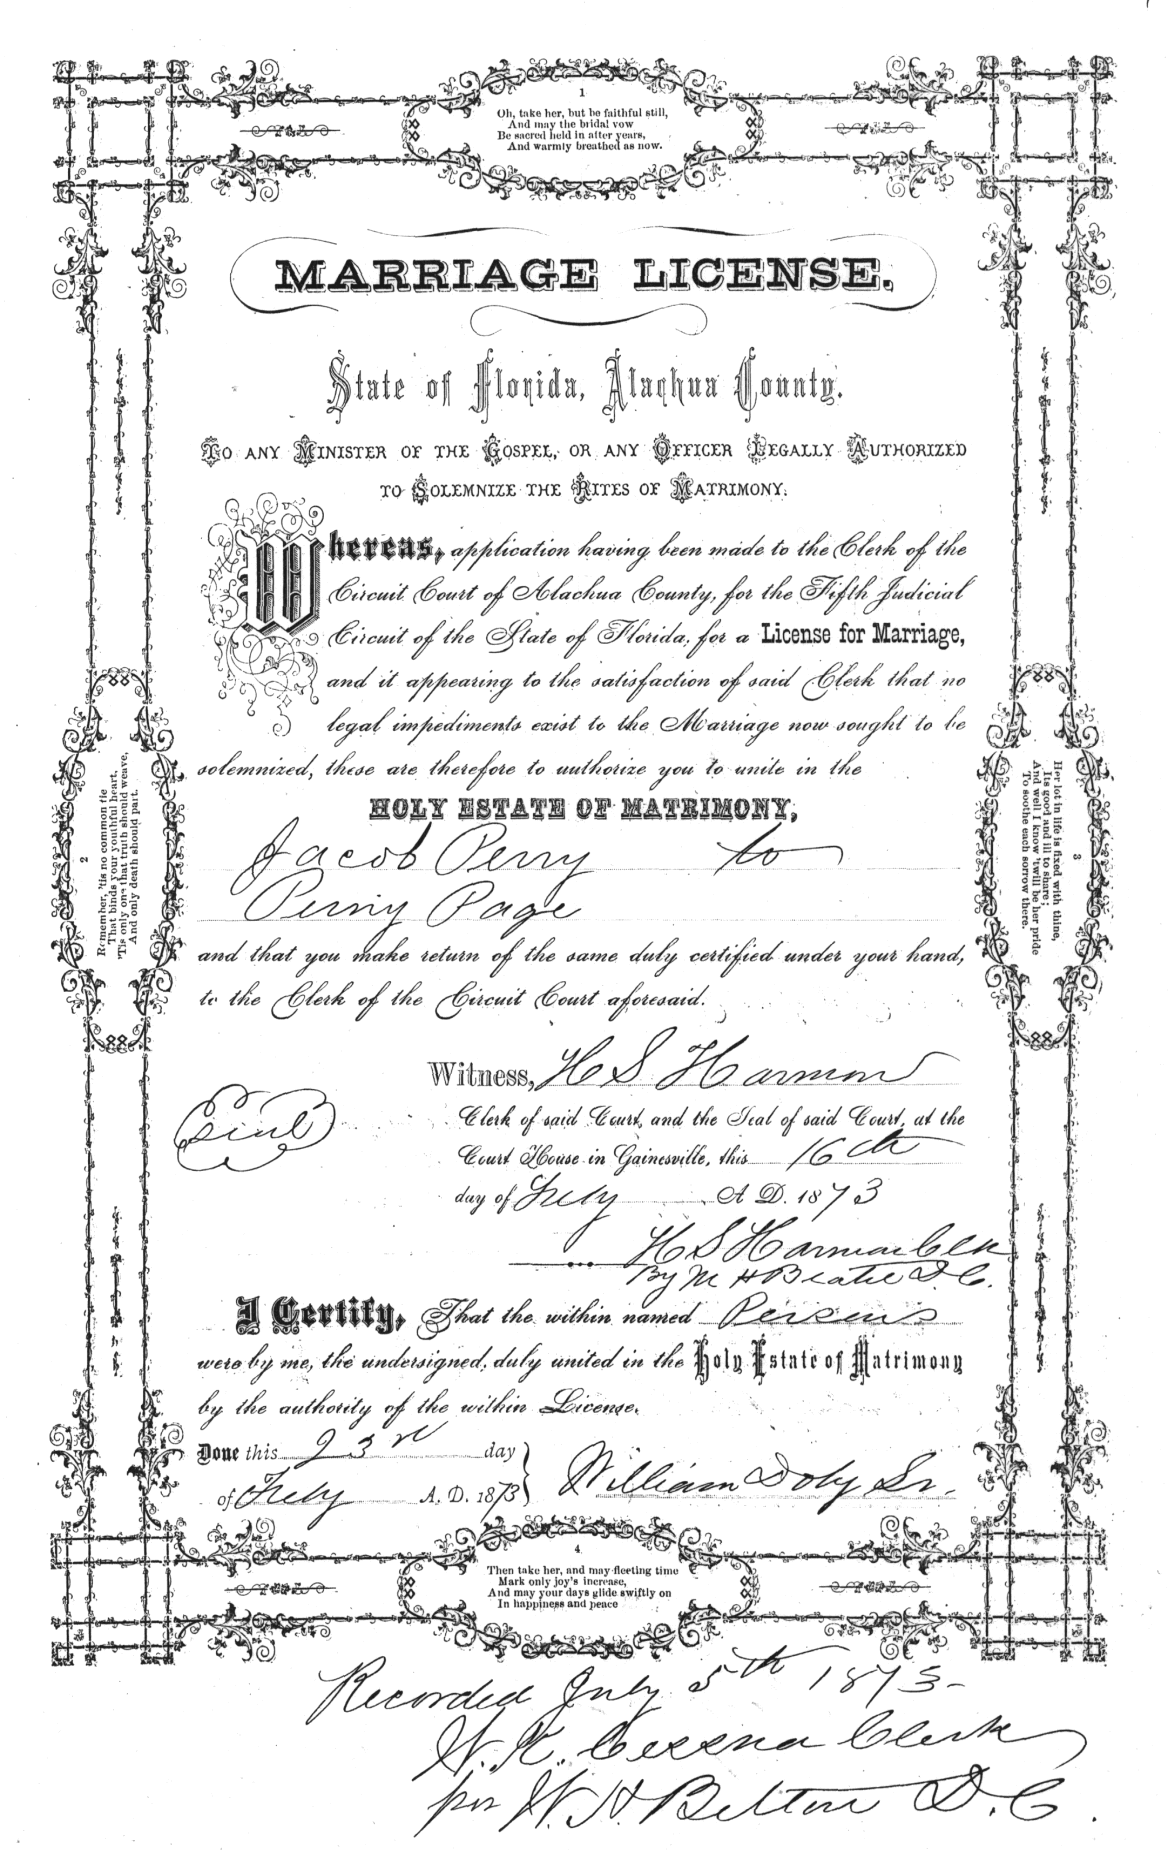 1
Oh, take her, but be faithful still,
And may the bridal vow
Be sacred held in after years,
And warmly breathed as now.
MARRIAGE LICENSE.
State of Florida, Alachua County.
TO ANY MINISTER OF THE GOSPEL, OR ANY OFFICER LEGALLY AUTHORIZED
TO SOLEMNIZE THE RITES OF MATRIMONY:
Whereas, application having been made to the Clerk of the
Circuit Court of Alachua County, for the Fifth Judicial
Circuit of the State of Florida, for a License for Marriage,
and it appearing to the satisfaction of said Clerk that no
legal impediments exist to the Marriage now sought to be
solemnized, these are therefore to authorize you to unite in the
HOLY ESTATE OF MATRIMONY;
Jacob Perry to
Penny Page
and that you make return of the same duly certified under your hand,
to the Clerk of the Circuit Court aforesaid.
Witness, H S Harmon
Clerk of said Court, and the Seal of said Court, at the
Seal
Court House in Gainesville, this 16th
day of July A D. 1873
H S Harmon Clk
By M H Beatie D C.
I Certify, That the within named Persons
were by me, the undersigned, duly united in the Holy Estate of Matrimony
by the authority of the within License.
Done this 23rd day
of July A. D. 1873 William Doby Sr.
2
Remember, 'tis no common tie
That binds your youthful heart,
'Tis only one that truth should weave,
And only death should part.
3
Her lot in life is fixed with thine,
Its good and ill to share;
And well I know 'twill be her pride
To soothe each sorrow there.
4.
Then take her, and may fleeting time
Mark only joy's increase,
And may your days glide swiftly on
In happiness and peace
Recorded July 5th 1873-
W. K. Cessna Clerk
per W. H. Belton D. C.